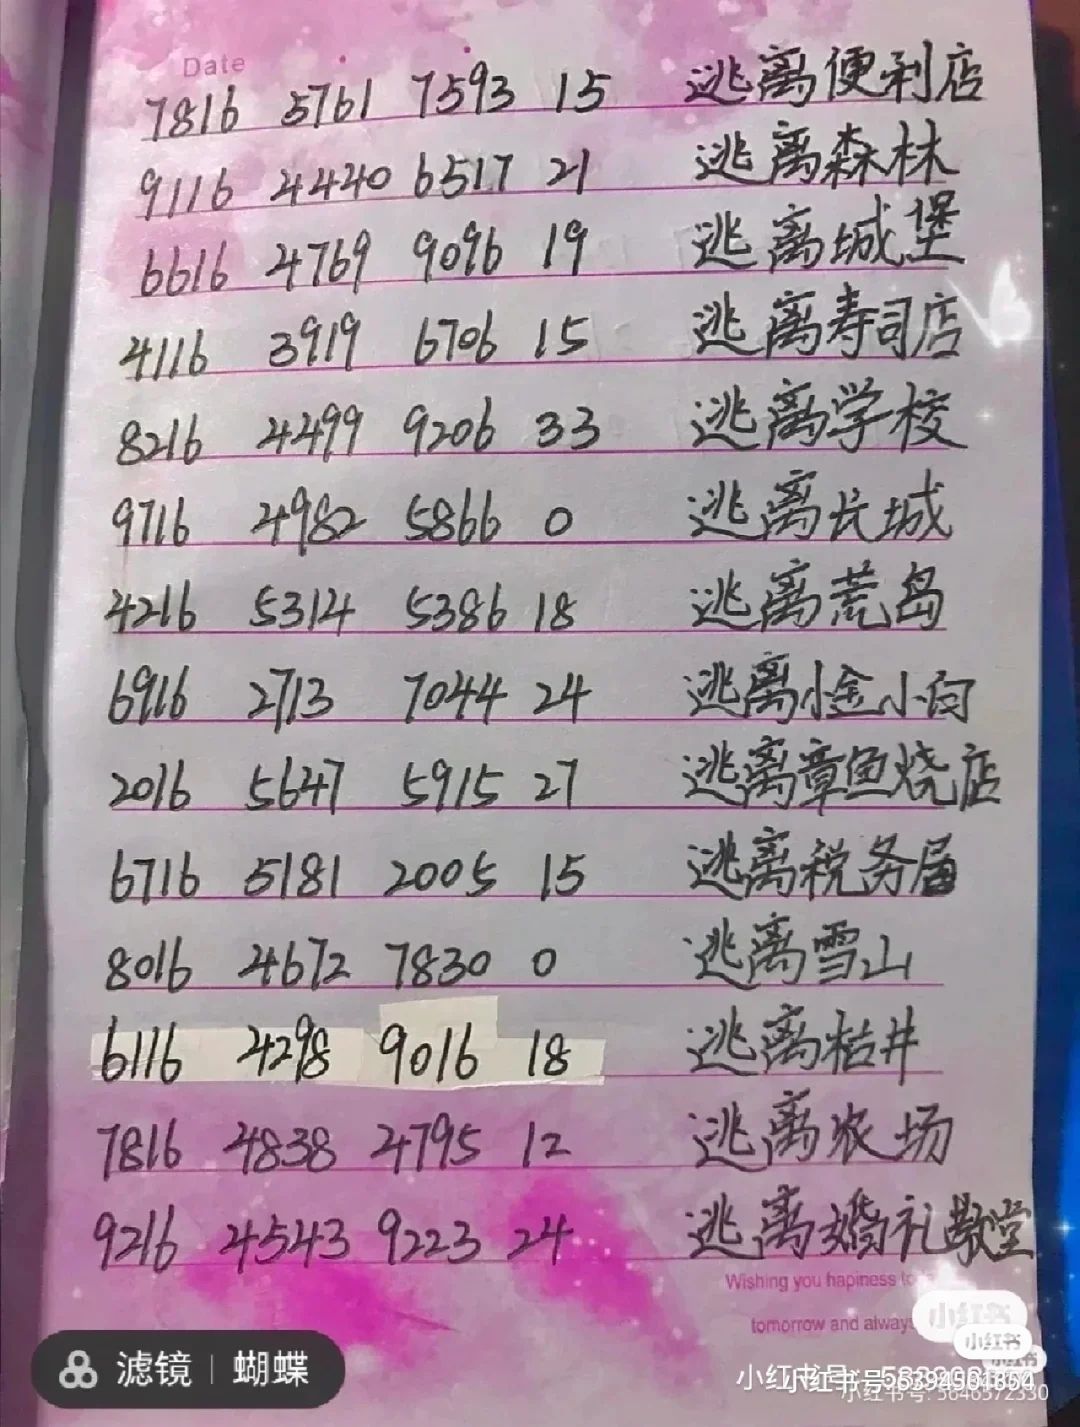 Date
7816 5761 7593 15 逃离便利店
9116 4440 6517 21 逃离森林
6616 4769 9096 19 逃离城堡
4116 3919 6706 15 逃离寿司店
8216 4499 9206 33 逃离学校
9716 4982 5866 0 逃离长城
4216 5314 5386 18 逃离荒岛
6916 2713 7044 24 逃离小金小向
2016 5647 5915 27 逃离章鱼烧店
6716 5181 2005 15 逃离税务局
8016 4672 7830 0 逃离雪山
6116 4298 9016 18 逃离枯井
7816 4838 4795 12 逃离农场
9216 4543 9223 24 逃离婚礼教堂
Wishing you hapiness to
tomorrow and always
小红书
小红书
小红书
滤镜 | 蝴蝶
小红书号:
小红书号:
小红书号: 5646572330